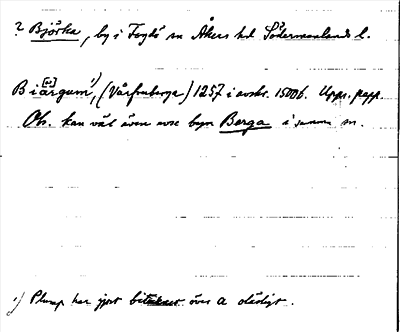 ? Björka, by i Fogdö sn Åkers hd Södermanlands l.
Biärgum¹⁾, (Vårfruberga) 1257 i avskr. 1500b. Upps. papp.
Obs. kan väl även avse byn Berga i samma sn.
1) Plump har gjort över a otydligt.